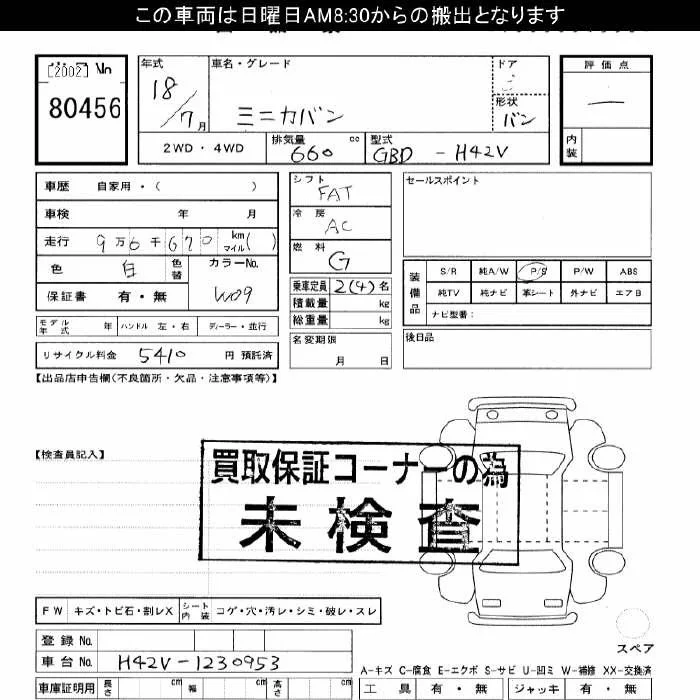 この車両は日曜日AM8:30からの搬出となります
[2002] No
80456
年式 車名・グレード ドア 評価点
18/7月 ミニカバン 形状 バン
2WD・4WD 排気量 660 cc 型式 GBD - H42V 内装
車歴 自家用・( )
車検 年 月
走行 9万6千670 km マイル( )
色 白 色替 カラーNo. W09
保証書 有・無
モデル年式 年 ハンドル 左・右 ディーラー・並行
リサイクル料金 5410 円 預託済
シフト FAT
冷房 AC
燃料 G
乗車定員 2(4)名
積載量 kg
総重量 kg
名変期限 月 日
セールスポイント
装備品 S/R 純A/W P/S P/W ABS
純TV 純ナビ 革シート 外ナビ エアB
ナビ型番:
後日品
【出品店申告欄(不良箇所・欠品・注意事項等)】
【検査員記入】
買取保証コーナーの為
未検査
FW キズ・トビ石・割レX シート内装 コゲ・穴・汚レ・シミ・破レ・スレ
スペア
登録No.
車台No. H42V-1230953
A-キズ C-腐食 E-エクボ S-サビ U-凹ミ W-補修 XX-交換済
車庫証明用 長さ cm 幅 cm 高さ cm 工具 有・無 ジャッキ 有・無